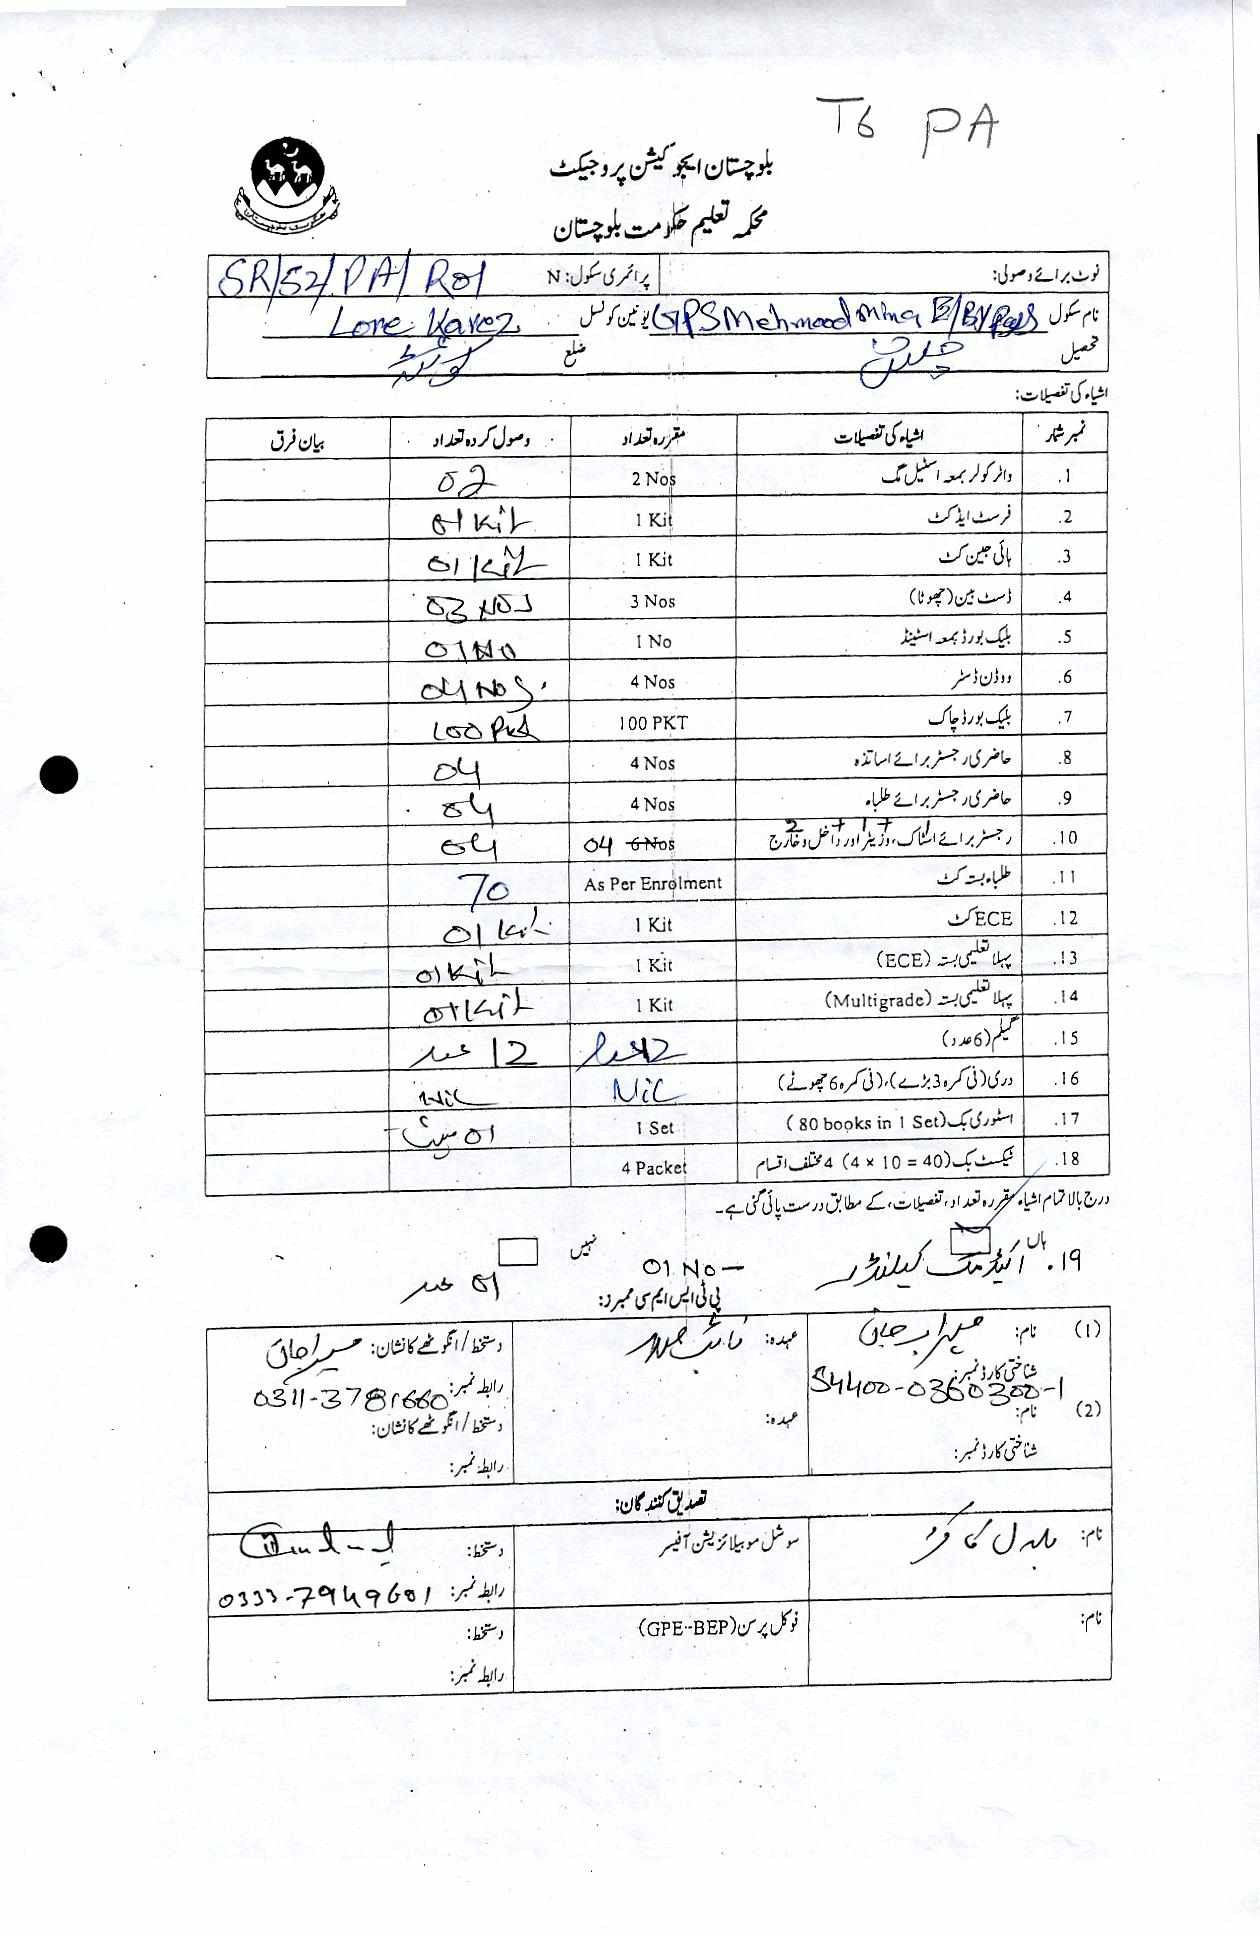 T6 PA
بلوچستان ایجوکیشن پروجیکٹ
محکمہ تعلیم حکومت بلوچستان
نوٹ برائے وصولی: پرائمری سکول: N SR/52/PA/R01
نام سکول GPS Mehmood Mina E/By Pass یونین کونسل Lore Karez
تحصیل ضلع کوئٹہ
اشیاء کی تفصیلات:
نمبر شمار اشیاء کی تفصیلات مقررہ تعداد وصول کردہ تعداد بیان فرق
1. واٹر کولر بمعہ اسٹیل مگ 2 Nos 02
2. فرسٹ ایڈ کٹ 1 Kit 01 Kit
3. ہائی جین کٹ 1 Kit 01 Kit
4. ڈسٹ بین (چھوٹا) 3 Nos 03 Nos
5. بلیک بورڈ بمعہ اسٹینڈ 1 No 01 No
6. ووڈن ڈسٹر 4 Nos 04 Nos.
7. بلیک بورڈ چاک 100 PKT 100 Pkt
8. حاضری رجسٹر برائے اساتذہ 4 Nos 04
9. حاضری رجسٹر برائے طلباء 4 Nos 04
10. رجسٹر برائے اسٹاک، وزیٹر اور داخل و خارج 2+1+1 04 6 Nos 04
11. طلباء بستہ کٹ As Per Enrolment 70
12. ECE کٹ 1 Kit 01 Kit
13. پہلا تعلیمی بستہ (ECE) 1 Kit 01 Kit
14. پہلا تعلیمی بستہ (Multigrade) 1 Kit 01 Kit
15. گیلم (6 عدد) 12 عدد 12 عدد
16. دری (فی کمرہ 3 بڑے)، (فی کمرہ 6 چھوٹے) Nil Nil
17. اسٹوری بک (80 books in 1 Set) 1 Set 01 سیٹ
18. ٹیکسٹ بک (4 × 10 = 40) 4 مختلف اقسام 4 Packet
درج بالا تمام اشیاء مقررہ تعداد، تفصیلات، کے مطابق درست پائی گئی ہے۔
ہاں نہیں
19. اکیڈمک کیلنڈر 01 No 01 عدد
پی ٹی ایس ایم سی ممبرز:
(1) نام: عہدہ: نائب صدر دستخط/انگوٹھے کا نشان:
شناختی کارڈ نمبر: 54400-0360300-1 رابطہ نمبر: 0311-3781660
(2) نام: عہدہ: دستخط/انگوٹھے کا نشان:
شناختی کارڈ نمبر: رابطہ نمبر:
تصدیق کنندگان:
نام: سوشل موبیلائزیشن آفیسر دستخط:
رابطہ نمبر: 0333-7949601
نام: فوکل پرسن (GPE-BEP) دستخط:
رابطہ نمبر: